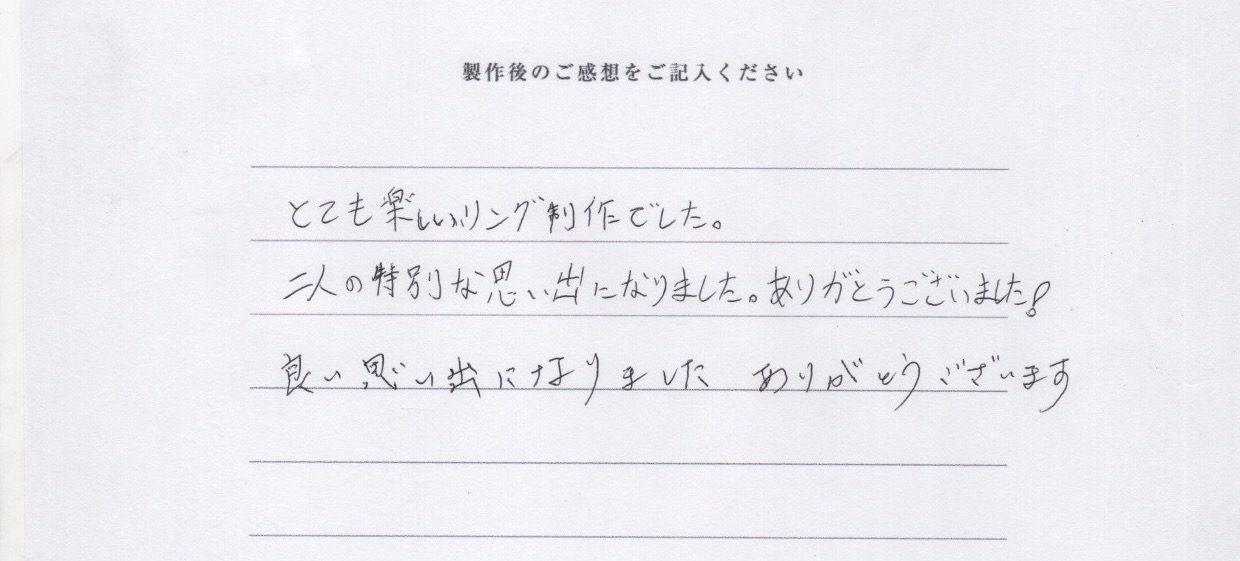 製作後のご感想をご記入ください
とても楽しいリング制作でした。
二人の特別な思い出になりました。ありがとうございました!
良い思い出になりました ありがとうございます